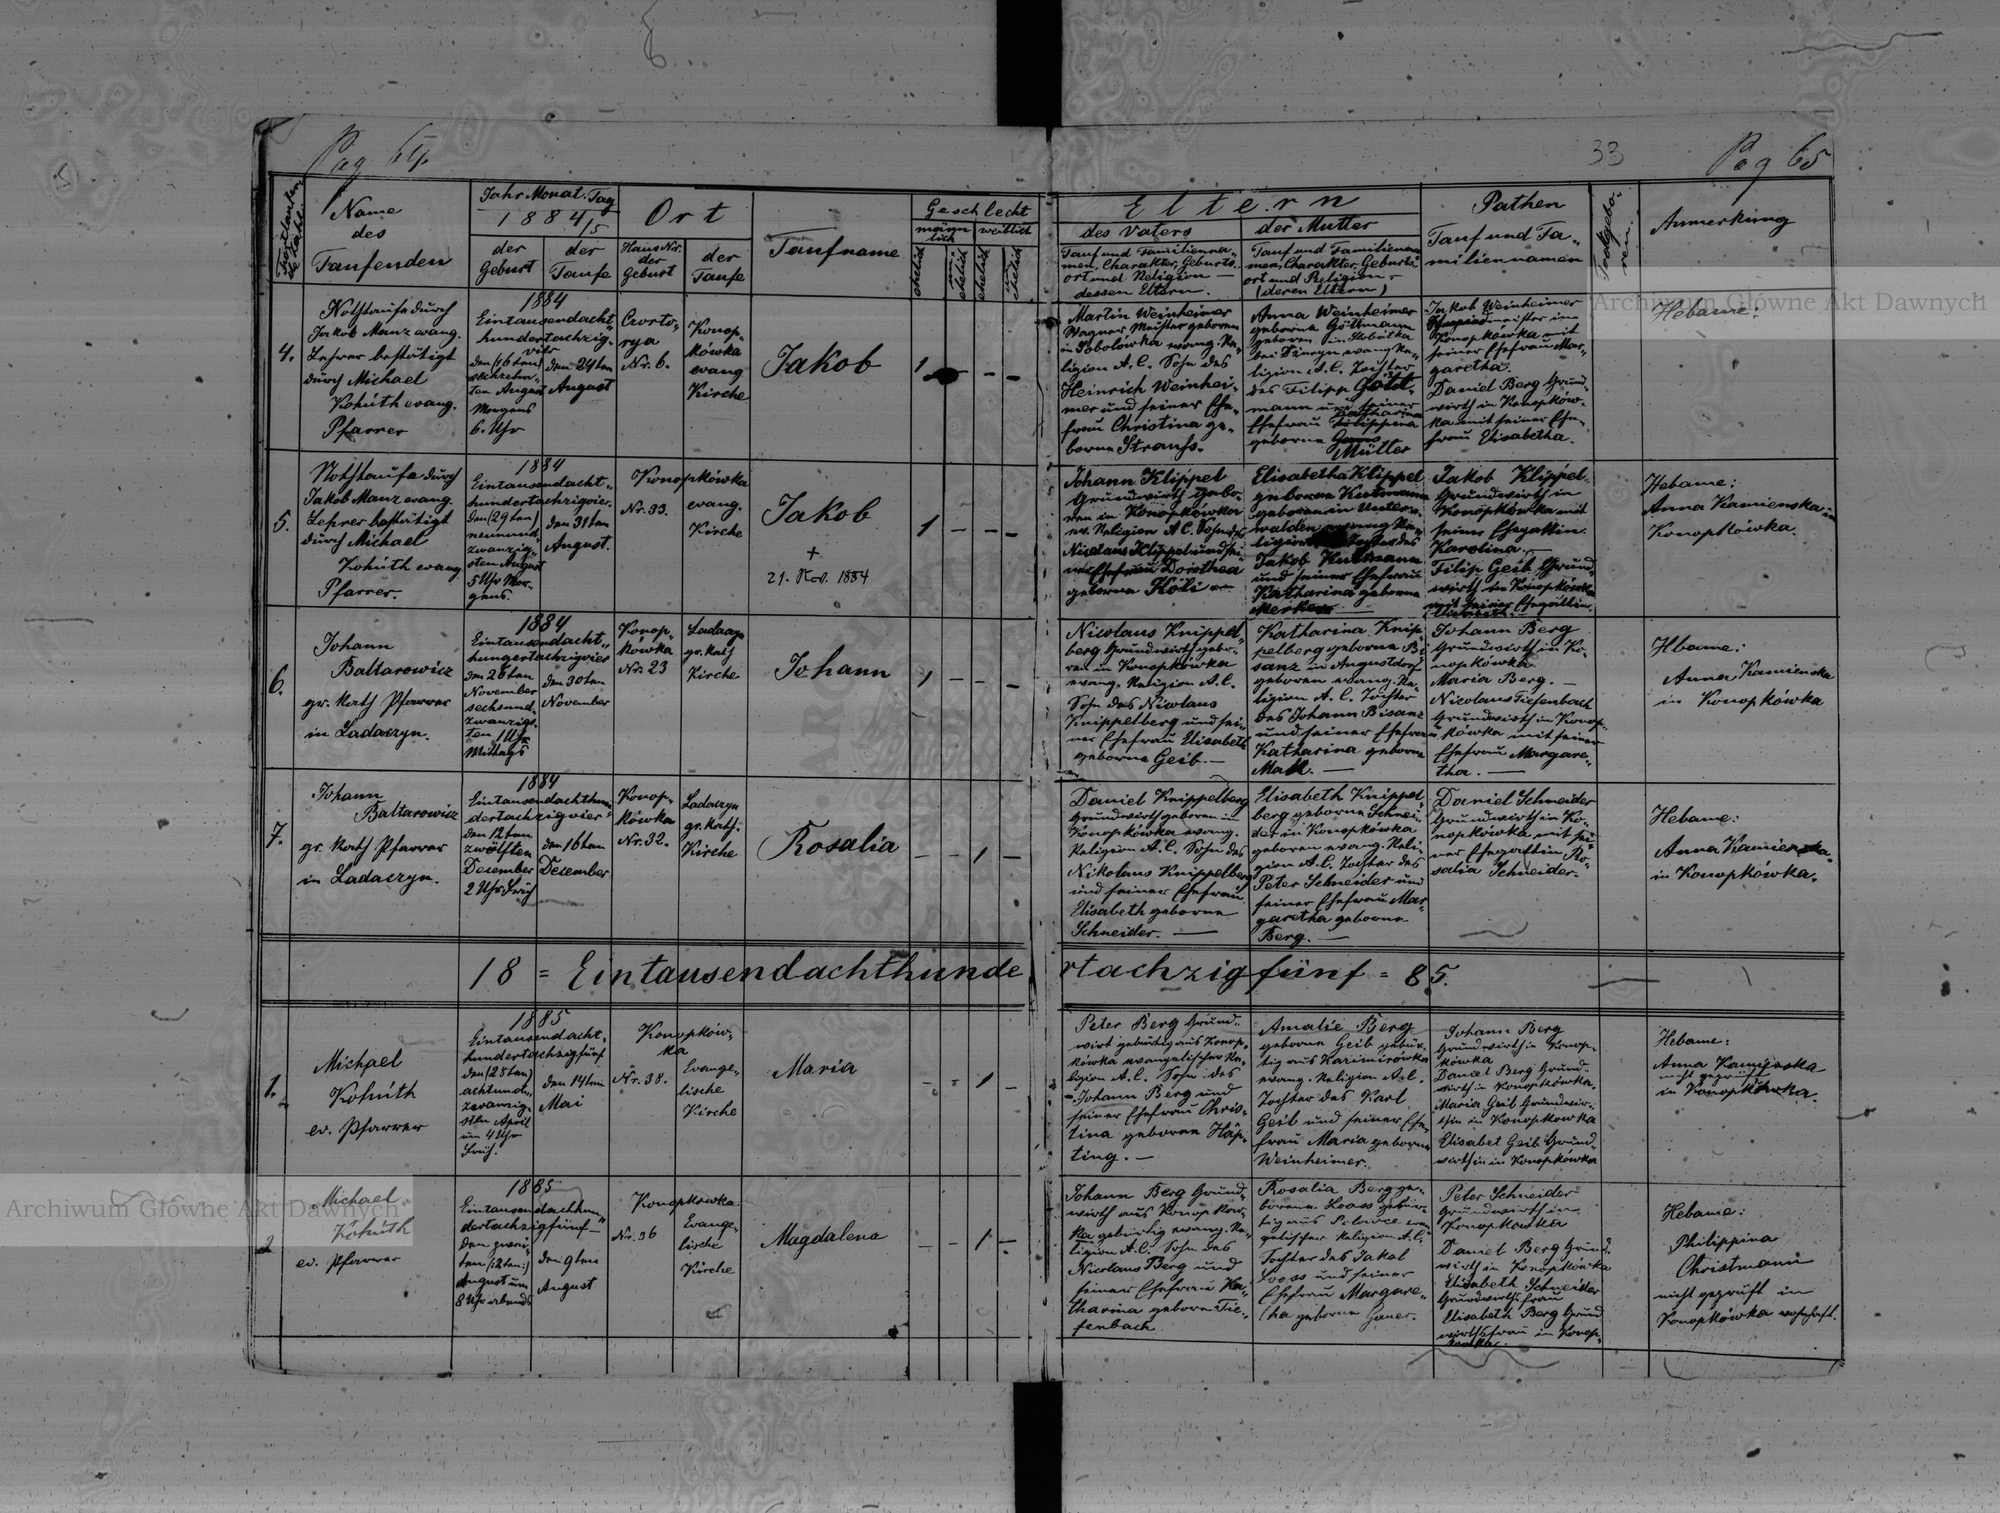 Pag 64.
33
Pag 65
Fortlaufende Zahl.
Name
des
Taufenden
Jahr Monat. Tag
1884/5
der
Geburt
der
Taufe
Ort
Haus Nr.
der
Geburt
der
Taufe
Taufname
Geschlecht
männ
lich
weiblich
ehelich
un-
ehelich
ehelich
un
ehelich
Eltern
des Vaters
Tauf und Familienna-
men, Charakter, Geburts-
ort und Religion —
dessen Eltern.
der Mutter
Tauf und Familienna
men, Charakter, Geburts-
ort und Religion —
(deren Eltern)
Pathen
Tauf und Fa-
miliennamen
Todtgebo-
ren.
Anmerkung
4.
Nothtaufe durch
Jakob Manz evang.
Lehrer bestätigt
durch Michael
Kohúth evang.
Pfarrer
1884
Eintausendacht-
hundertachzig-
vier
den (16ten)
sechzehn-
ten August
Morgens
6. Uhr
den 24ten
August
Czorto-
rya
Nr. 6.
Konop-
kówka
evang
Kirche
Jakob
1 - - -
Martin Weinheimer
Wagner Meister geboren
in Sobolowka evang. Re-
ligion A.C. Sohn des
Heinrich Weinhei-
mer und seiner Ehe-
frau Christina ge-
borne Straufs.
Anna Weinheimer
geborne Göttmann
geboren in Slobótka
bei Dzuryn evang Re-
ligion A.C. Tochter
des Filipp Gött-
mann und seiner
Katharina
Ehefrau Filippina
geborne
Mütter
Jakob Weinheimer
meister in
Konopkówka mit
seiner Ehefrau Mar-
garetha.
Daniel Berg Grund-
wirth in Konopków-
ka mit seiner Ehe-
frau Elisabetha.
Hebame:
5.
Nothtaufe durch
Jakob Manz evang.
Lehrer bestätigt
durch Michael
Kohúth evang
Pfarrer.
1884
Eintausendacht-
hundertachzigvier
den (29ten)
neunund-
zwanzig-
sten August
5 Uhr Mor-
gens.
den 31ten
August.
Konopkówka
Nr. 33.
evang.
Kirche
Jakob
+
21. Nov. 1884
1 - - -
Johann Klippel
Grundwirth gebo-
ren in Konopkówka
ev. Religion A.C. Sohn des
Nicolaus Klippel und sei-
ner Ehefrau Dorothea
geborne
Elisabetha Klippel
geborene Kuhmann
geboren in Unter-
walden evang Re-
ligion Tochter des
Jakob Kuhmann
und seiner Ehefrau
Katharina geborne
Jakob Klippel
Grundwirth in
Konopkówka mit
seiner Ehegattin
Karolina —
Filip Geib Grund-
wirth in Konopkówka
mit seiner Ehegattin
Hebame:
Anna Kamienska in
Konopkówka.
6.
Johann
Baltarowicz
gr. kath Pfarrer
in Ladaczyn.
1884
Eintausendacht-
hungertachzigvier
den 26ten
November
sechsund-
zwanzigs-
ten 1 Uhr
Mittags
den 30ten
November
Konop-
kówka
Nr. 23
Ladaczyn
gr. kath
Kirche
Johann
1 - - -
Nicolaus Knippel-
berg Grundwirth gebo-
ren in Konopkówka
evang. Religion A.C.
Sohn des Nicolaus
Knippelberg und sei-
ner Ehefrau Elisabeth
geborne Geib. —
Katharina Knip-
pelberg geborne Bi
sanz in Augustdorf
geboren evang. Re-
ligion A. C. Tochter
des Johann Bisanz
und seiner Ehefrau
Katharina geborne
—
Johann Berg
Grundwirth in Ko-
nopkówka
Maria Berg. —
Nicolaus Tiefenbach
Grundwirth in Konop-
kówka mit seiner
Ehefrau Margare-
tha. —
Hbame:
Anna Kamienska
in Konopkówka
7.
Johann
Baltarowicz
gr. kath Pfarrer
in Ladaczyn.
1884
Eintausendachthun-
dertachzigvier-
den 12ten
zwölften
December
2 Uhr Früh
den 16ten
December
Konop-
kówka
Nr. 32.
Ladaczyn
gr. kath.
Kirche
Rosalia
- - 1 -
Daniel Knippelberg
Grundwirth geboren in
Konopkówka evang.
Religion A.C. Sohn des
Nikolaus Knippelberg
und seiner Ehefrau
Elisabeth geborne
Schneider. —
Elisabeth Knippel-
berg geborne Schnei-
der in Konopkówka
geboren evang. Reli-
gion A.C. Tochter des
Peter Schneider und
seiner Ehefrau Mar-
garetha geborne
Berg. —
Daniel Schneider
Grundwirth in Ko-
nopkówka mit sei-
ner Ehegattin Ro-
salia Schneider.
Hebame:
Anna Kamienska.
in Konopkówka.
18 = Eintausendachthundertachzigfünf = 85.
1.
Michael
Kohúth
ev. Pfarrer
1885
Eintausendacht-
hundertachzigfünf
den (28ten)
achtund-
zwanzig-
sten April
um 4 Uhr
Früh.
den 14ten
Mai
Konopków-
ka
Nr. 38.
Evange-
lische
Kirche
Maria
- - 1 -
Peter Berg Grund-
wirt gebürtig aus Konop-
kówka evangelischer Re-
ligion A.C. Sohn des
Johann Berg und
seiner Ehefrau Chris-
tina geborne Häp-
ting. —
Amalie Berg
geborne Geib gebür-
tig aus Kazimirówka
evang. Religion A.C.
Tochter des Karl
Geib und seiner Ehe-
frau Maria geborne
Weinheimer.
Johann Berg
Grundwirth in Konop-
kówka
Daniel Berg Grund-
wirth in Konopkówka.
Maria Geib Grundwir-
thin in Konopkowka
Elisabet Geib Grund-
wirthin in Konopkówka
Hebame:
Anna Kamienska
nicht geprüft
in Konopkówka.
2
Michael
Kohúth
ev. Pfarrer
1885
Eintausendachthun-
dertachzigfünf—
den zwei-
ten (12ten:)
August um
8 Uhr abends
den 9ten
August
Konopkowka
Nr. 36
Evange-
lische
Kirche
Magdalena
- - 1 -
Johann Berg Grund-
wirth aus Konopkow-
ka gebürtig evang. Re-
ligion A.C. Sohn des
Nicolaus Berg und
seiner Ehefrau Ka-
tharina geborne Tie-
fenbach
Rosalia Berg ge-
borene Looss gebür-
tig aus Polowce evan-
gelischer Religion A.C.
Tochter des Jakob
Looss und seiner
Ehefrau Margare-
tha geborne Gauer.
Peter Schneider
Grundwirth in
Konopkowka
Daniel Berg Grund.
wirth in Konopkówka
Elisabeth Schneider
Grundwirths frau
Elisabeth Berg Grund
wirthsfrau in Konop-
kówka.
Hebame:
Philippina
Christmann
nicht geprüft in
Konopkówka wohnhaft.
Archiwum Główne Akt Dawnych
Archiwum Główne Akt Dawnych